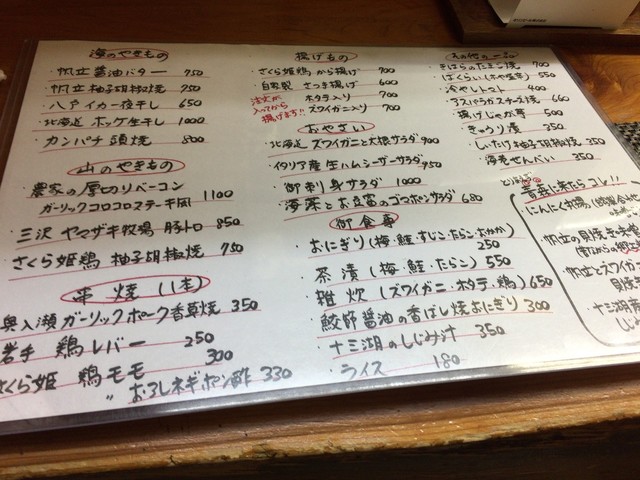 海のやきもの
・帆立醤油バター 750
・帆立柚子胡椒焼 750
・八戸イカ一夜干し 650
・北海道 ホッケ生干し 1000
・カンパチ頭焼 800
山のやきもの
・農家の厚切りベーコン
ガーリックコロコロステーキ風 1100
・三沢 ヤマザキ牧場 豚トロ 850
・さくら姫鶏 柚子胡椒焼 750
串焼(1本)
奥入瀬ガーリックポーク香草焼 350
岩手 鶏レバー 250
さくら姫 鶏モモ 300
〃 おろしネギポン酢 330
揚げもの
・さくら姫鶏 から揚げ 700
・自家製 さつま揚げ 600
注文が入ってから揚げます!!
ホタテ入り 700
ズワイガニ入り 700
おやさい
・北海道 ズワイガニと大根サラダ 900
・イタリア産 生ハムシーザーサラダ 950
・御刺身サラダ 1000
・海藻とお豆富のゴマポンサラダ 680
御食事
・おにぎり(梅・鮭・すじこ・たらこ・おかか) 250
・茶漬(梅・鮭・たらこ) 550
・雑炊(ズワイガニ・ホタテ・鶏) 650
・鮫師醤油の香ばし焼おにぎり 300
・十三湖のしじみ汁 350
・ライス 180
その他の一品
・そはらのたまご焼 700
・ばくらい(ホヤ塩辛) 550
・冷やしトマト 400
・アスパラガスチーズ焼 660
・揚げじゃが芋 500
・きゅうり漬 350
・しいたけ柚子胡椒焼 350
・海老せんべい 350
青森に来たらコレ!!
・にんにく
・帆立の貝焼き味噌
・帆立とズワイ
貝焼
・十三湖
しじ